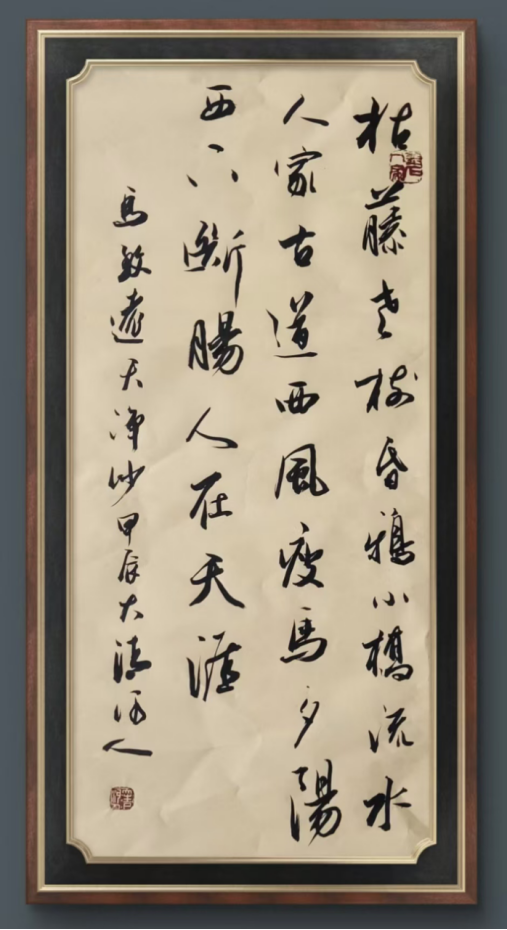 枯藤老樹昏鴉小橋流水
人家古道西風瘦馬夕陽
西下斷腸人在天涯
馬致遠天淨沙甲辰大人